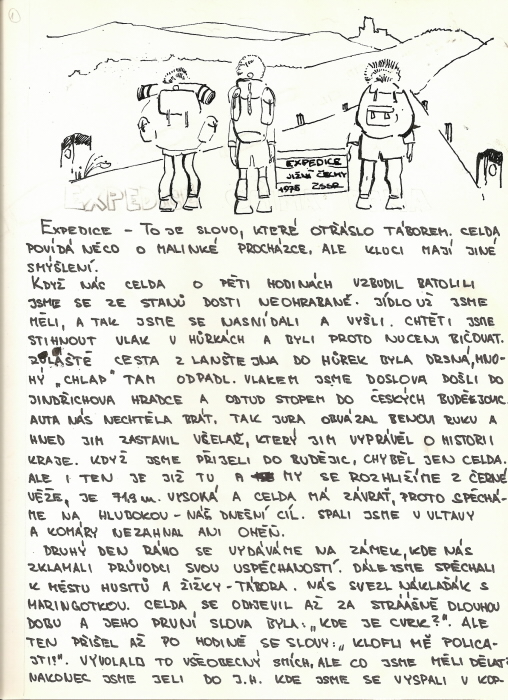 1
EXPEDICE
JIŽNÍ ČECHY
1975 ČSSR
EXPED
EXPEDICE – TO JE SLOVO, KTERÉ OTŘÁSLO TÁBOREM. CELDA
POVÍDÁ NĚCO O MALINKÉ PROCHÁZCE, ALE KLUCI MAJÍ JINÉ
SMÝŠLENÍ.
KDYŽ NÁS CELDA O PĚTI HODINÁCH VZBUDIL BATOLILI
JSME SE ZE STANŮ DOSTI NEOHRABANĚ. JÍDLO UŽ JSME
MĚLI, A TAK JSME SE NASNÍDALI A VYŠLI. CHTĚLI JSME
STIHNOUT VLAK V HŮRKÁCH A BYLI PROTO NUCENI BIČOVAT.
ZVLÁŠTĚ CESTA Z LANŠTEJNA DO HŮREK BYLA DRSNÁ, MNO-
HÝ „CHLAP" TAM ODPADL. VLAKEM JSME DOSLOVA DOŠLI DO
JINDŘICHOVA HRADCE A ODTUD STOPEM DO ČESKÝCH BUDĚJOVIC.
AUTA NÁS NECHTĚLA BRÁT. TAK JURA OBVÁZAL BENOVI RUKU A
HNED JIM ZASTAVIL VČELAŘ, KTERÝ JIM VYPRÁVĚL O HISTORII
KRAJE. KDYŽ JSME PŘIJELI DO BUDĚJIC, CHYBĚL JEN CELDA.
ALE I TEN JE JIŽ TU A MY SE ROZHLIŽÍME Z ČERNÉ
VĚŽE, JE 71,9 m. VYSOKÁ A CELDA MÁ ZÁVRAŤ, PROTO SPĚCHÁ-
ME NA HLUBOKOU – NÁŠ DNEŠNÍ CÍL. SPALI JSME U VLTAVY
A KOMÁRY NEZAHNAL ANI OHEŇ.
DRUHÝ DEN RÁNO SE VYDÁVÁME NA ZÁMEK, KDE NÁS
ZKLAMALI PRŮVODCI SVOU USPĚCHANOSTÍ. DÁLE JSME SPĚCHALI
K MĚSTU HUSITŮ A ŽIŽKY – TÁBORA. NÁS SVEZL NÁKLAĎÁK S
MARINGOTKOU. CELDA SE ODJEVIL AŽ ZA STRÁÁŠNĚ DLOUHOU
DOBU A JEHO PRVNÍ SLOVA BYLA: „KDE JE CVRK?". ALE
TEN PŘIŠEL AŽ PO HODINĚ SE SLOVY: „KLOFLI MĚ POLICA-
JTI!". VYVOLALO TO VŠEOBECNÝ SMÍCH, ALE CO JSME MĚLI DĚLAT?
NAKONEC JSME JELI DO J.H. KDE JSME SE VYSPALI V KOP-